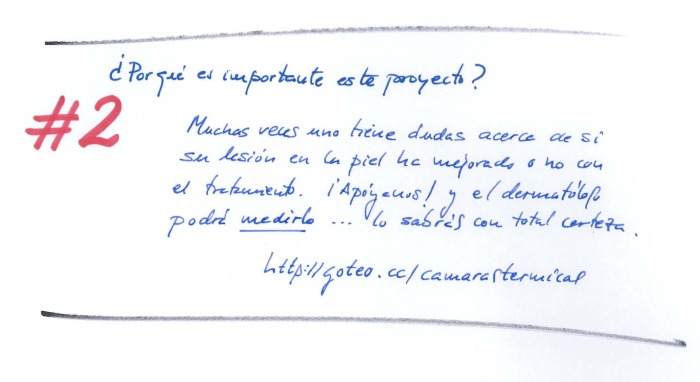 ¿Por qué es importante este proyecto?
#2
Muchas veces uno tiene dudas acerca de si
su lesión en la piel ha mejorado o no con
el tratamiento. ¡Apóyanos! y el dermatólogo
podrá medirlo ... lo sabrás con total certeza.
http://goteo.cc/camarastermicas